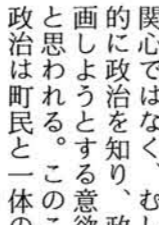 関心ではなく、むし
的に政治を知り、政
画しようとする意欲
と思われる。このこ
政治は町民と一体の